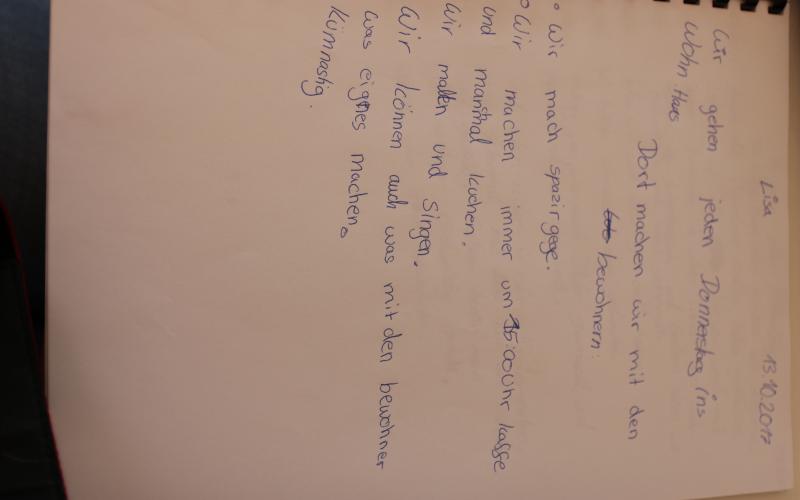 Lisa 13.10.2017
Wir gehen jeden Donnerstag ins
Wohn Haus
Dort machen wir mit den
bewohnern:
• Wir mach spazir gege.
• Wir machen immer um 15:00 Uhr kaffe
und manthal kuchen.
Wir malten und singen.
Wir können auch was mit den bewohner
was eignes machen.
Kümnastig.